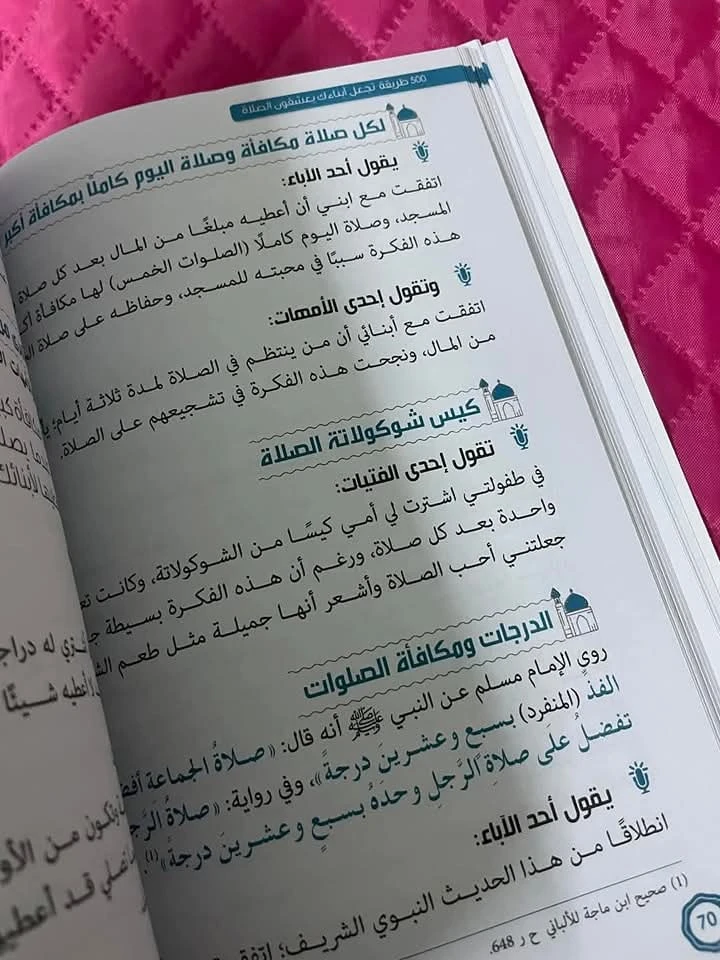 500 طريقة تجعل أبناءك يعشقون الصلاة
لكل صلاة مكافأة وصلاة اليوم كاملًا بمكافأة أكبر
يقول أحد الآباء:
اتفقت مع ابني أن أعطيه مبلغًا من المال بعد كل صلاة
المسجد، وصلاة اليوم كاملًا (الصلوات الخمس) لها مكافأة
هذه الفكرة سببًا في محبته للمسجد، وحفاظه على صلاة
وتقول إحدى الأمهات:
اتفقت مع أبنائي أن من ينتظم في الصلاة لمدة ثلاثة أيام؛
من المال، ونجحت هذه الفكرة في تشجيعهم على الصلاة.
كيس شوكولاتة الصلاة
تقول إحدى الفتيات:
في طفولتي اشترت لي أمي كيسًا من الشوكولاتة، وكانت
واحدة بعد كل صلاة، ورغم أن هذه الفكرة بسيطة
جعلتني أحب الصلاة وأشعر أنها جميلة مثل طعم
الدرجات ومكافأة الصلوات
روى الإمام مسلم عن النبي ﷺ أنه قال: «صلاةُ الجماعة
الفذِّ (المنفرد) بسبعٍ وعشرينَ درجةً»، وفي رواية: «صلاةُ
تفضلُ علَى صلاةِ الرَّجلِ وحدَهُ بسبعٍ وعشرينَ درجةً»(1).
يقول أحد الآباء:
انطلاقًا من هذا الحديث النبوي الشريف؛
(1) صحيح ابن ماجة للألباني ح ر 648.
70